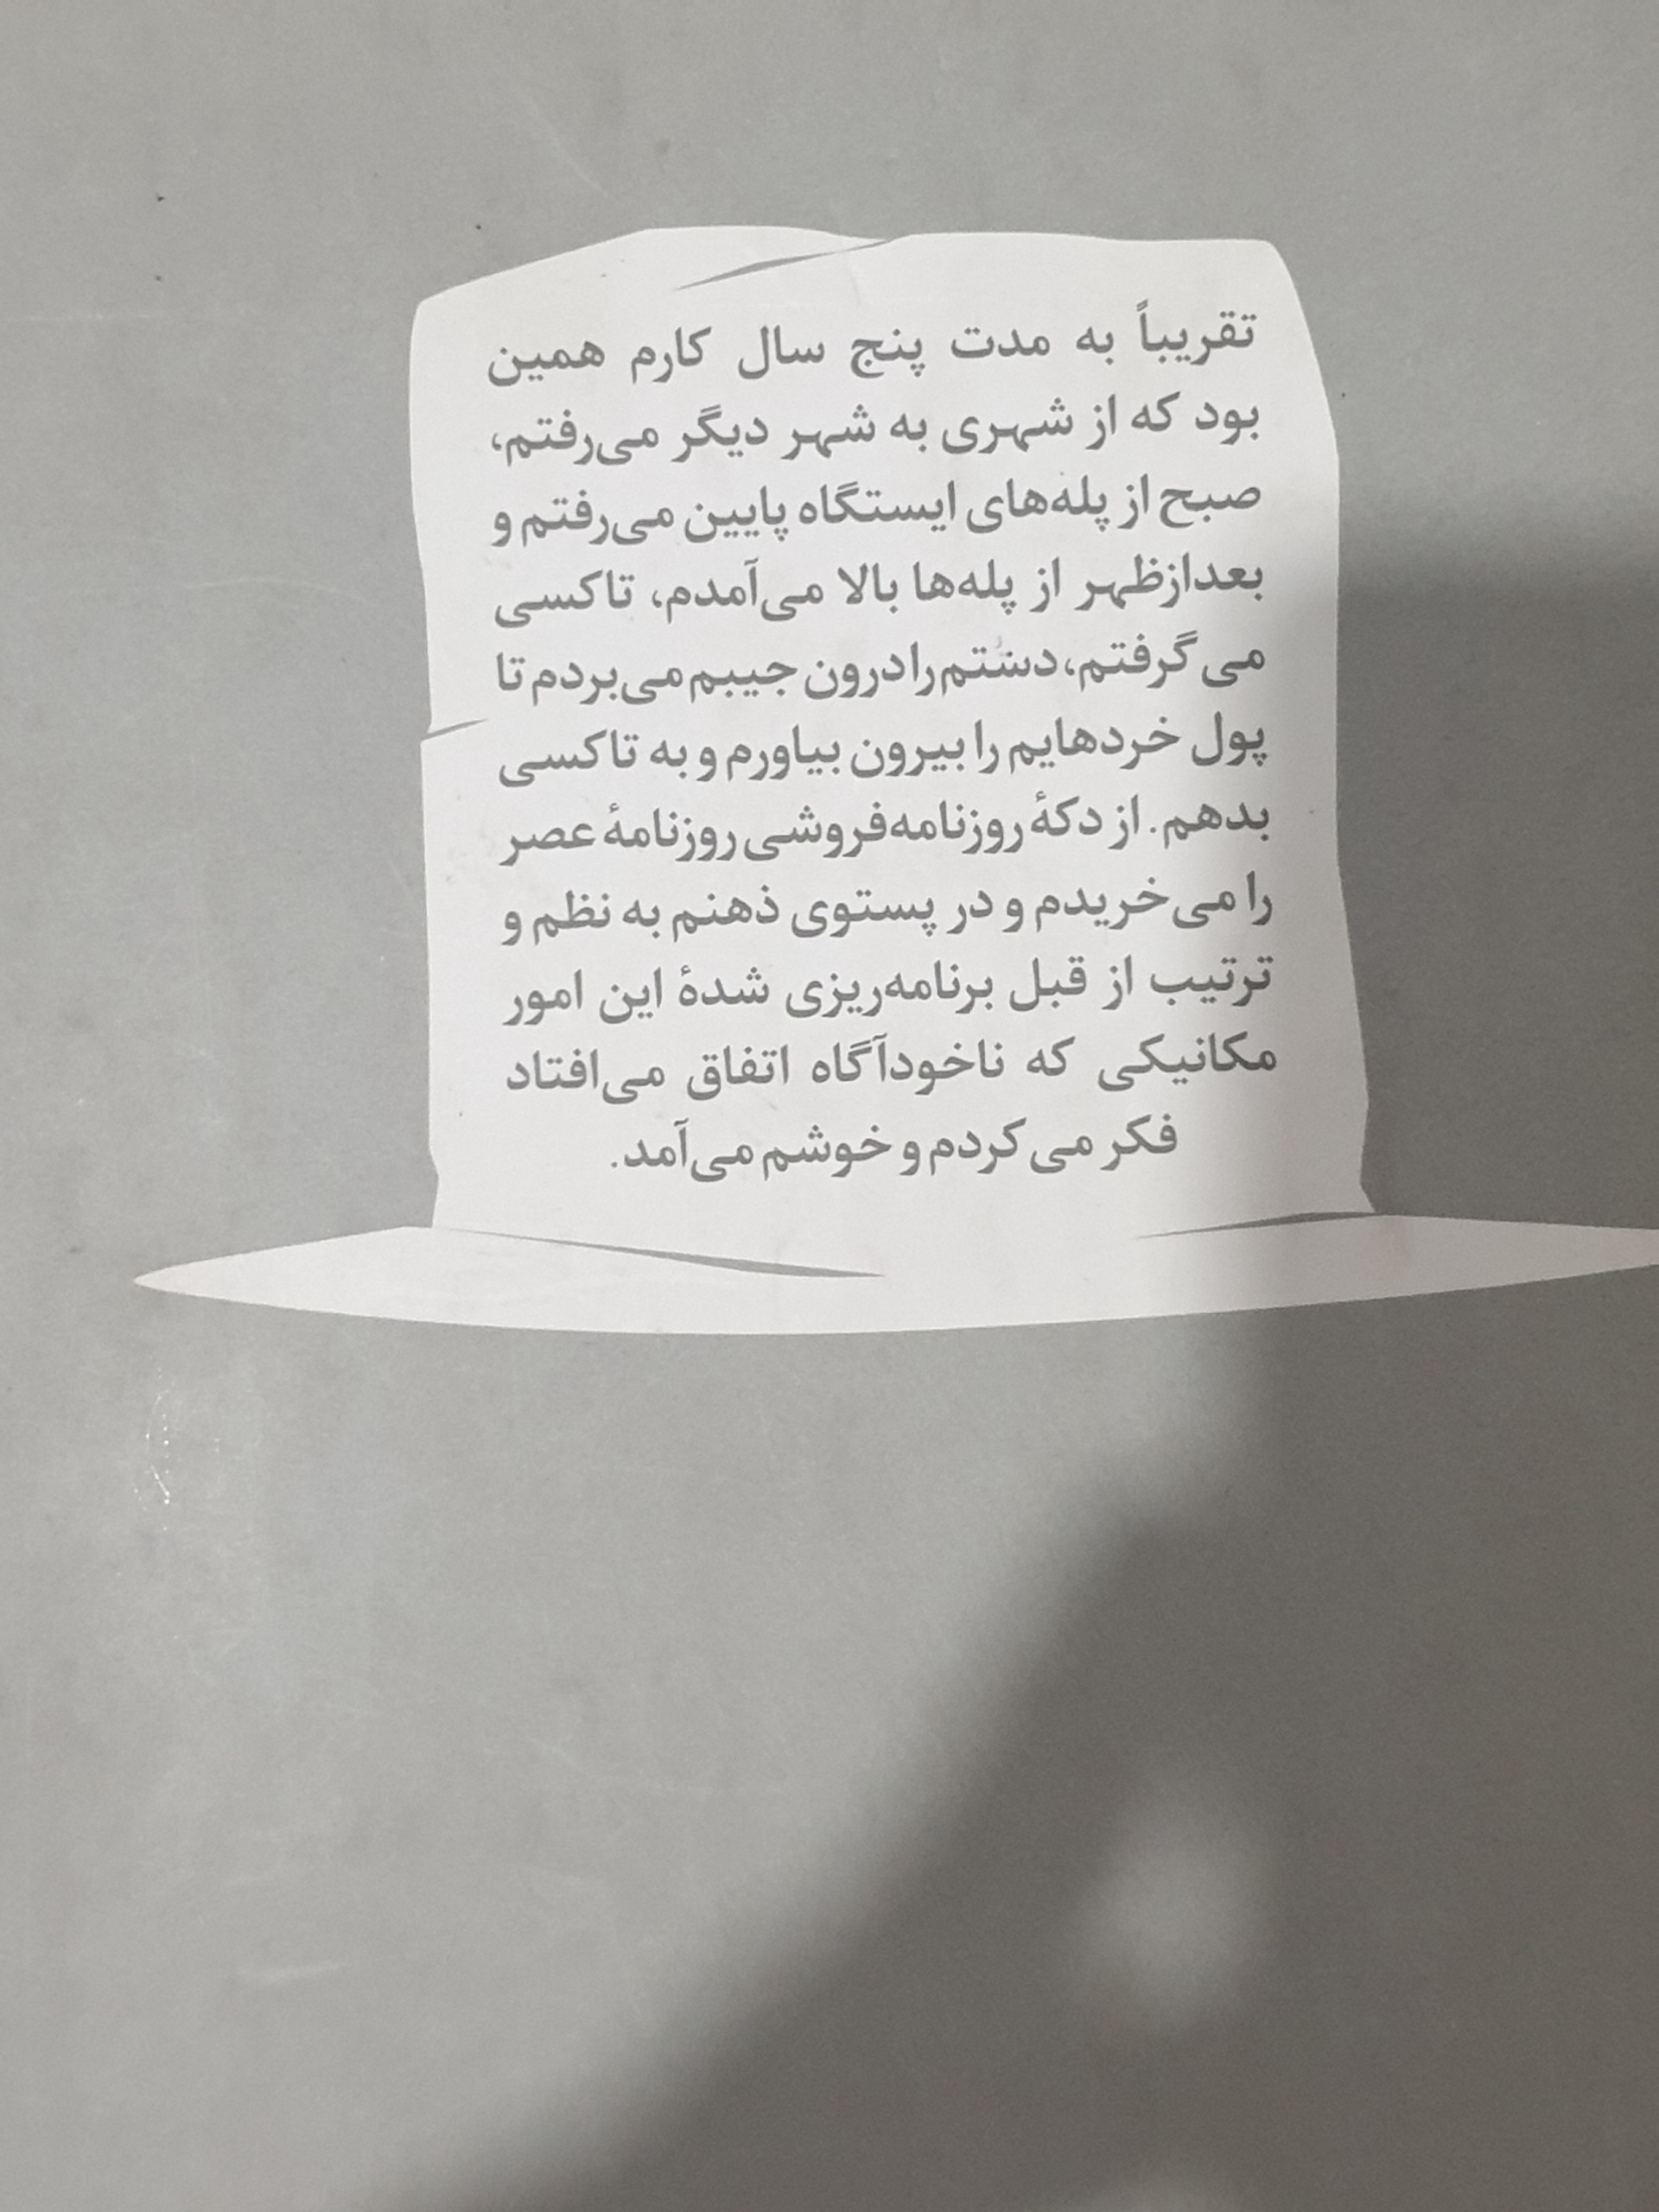 تقریباً به مدت پنج سال کارم همین
بود که از شهری به شهر دیگر می‌رفتم،
صبح از پله‌های ایستگاه پایین می‌رفتم و
بعدازظهر از پله‌ها بالا می‌آمدم، تاکسی
می گرفتم، دستم را درون جیبم می‌بردم تا
پول خردهایم را بیرون بیاورم و به تاکسی
بدهم. از دکهٔ روزنامه‌فروشی روزنامهٔ عصر
را می‌خریدم و در پستوی ذهنم به نظم و
ترتیب از قبل برنامه‌ریزی شدهٔ این امور
مکانیکی که ناخودآگاه اتفاق می‌افتاد
فکر می کردم و خوشم می‌آمد.